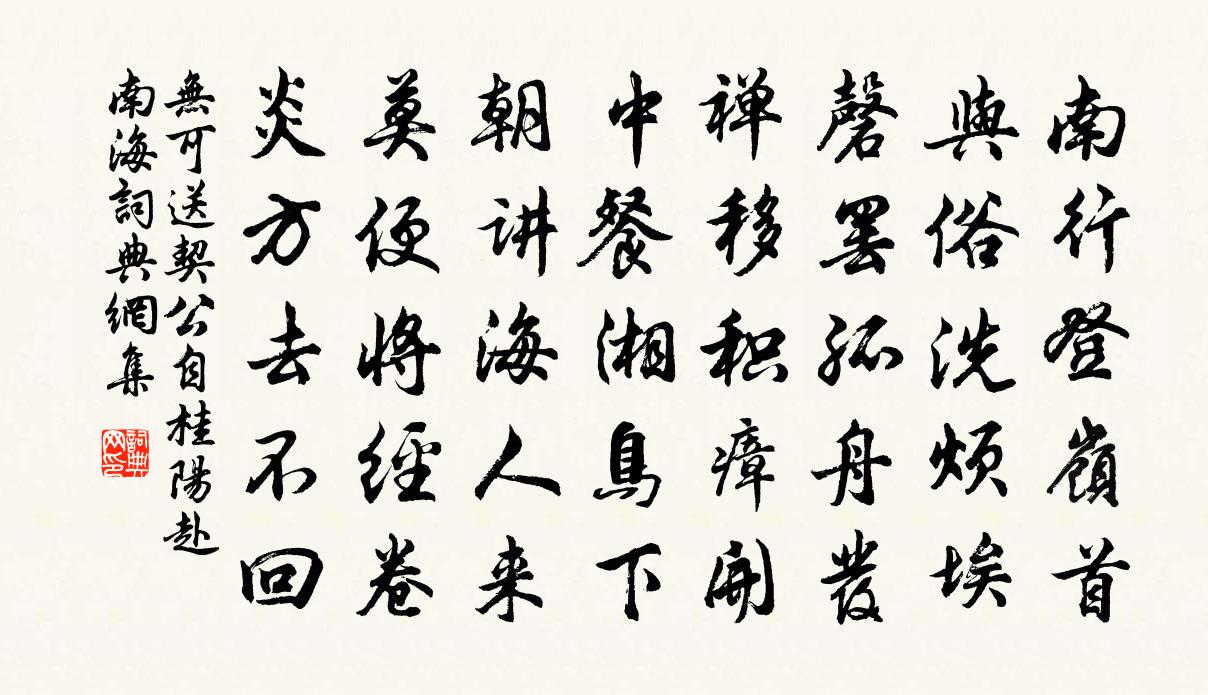 南行登嶺首
與俗洗烦埃
磬罢孤舟發
禅移积瘴開
中餐湘鳥下
朝讲海人来
莫便將經卷
炎方去不回
無可送契公自桂陽赴
南海詞典網集
詞典网印